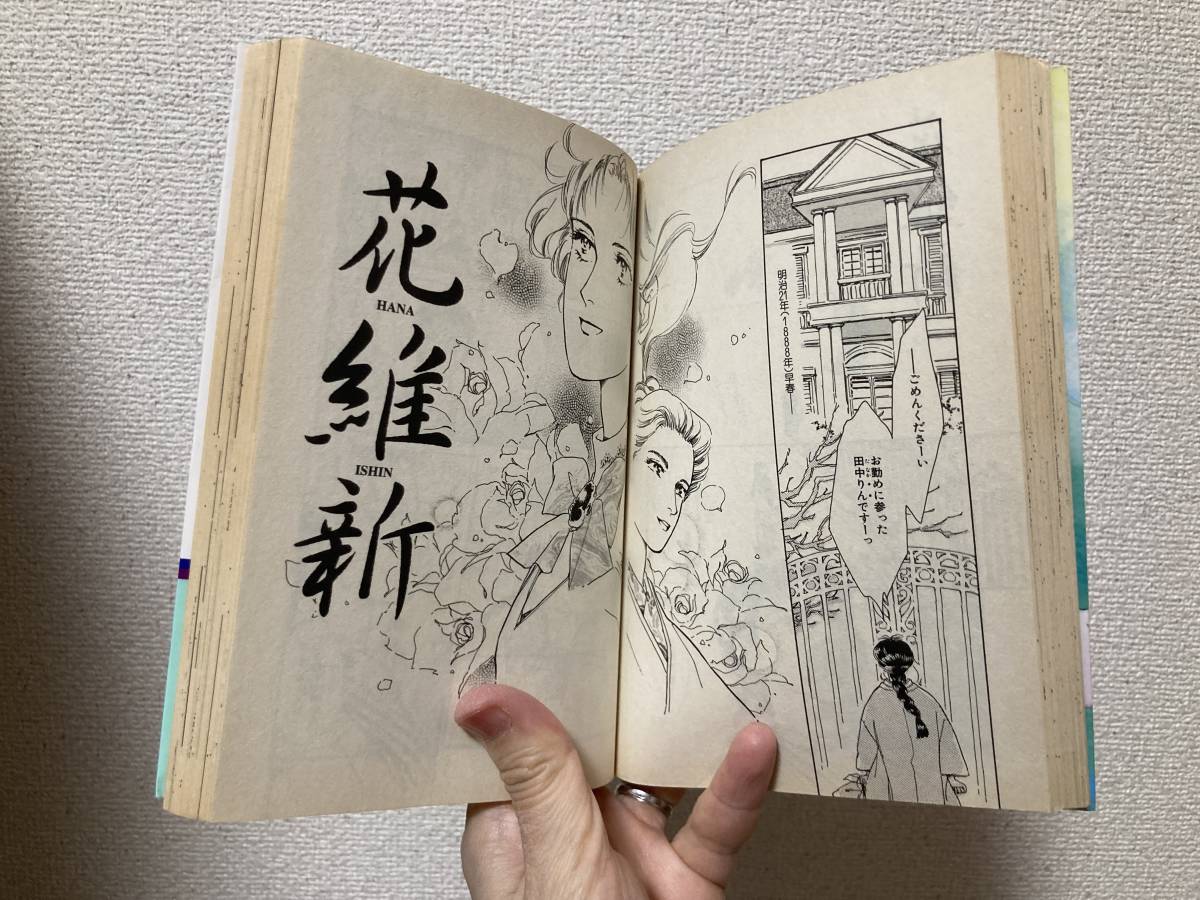 花
HANA
維
ISHIN
新
明治21年(1888年)早春──
──ごめんくださーい
お勤めに参った
田中りんですーっ